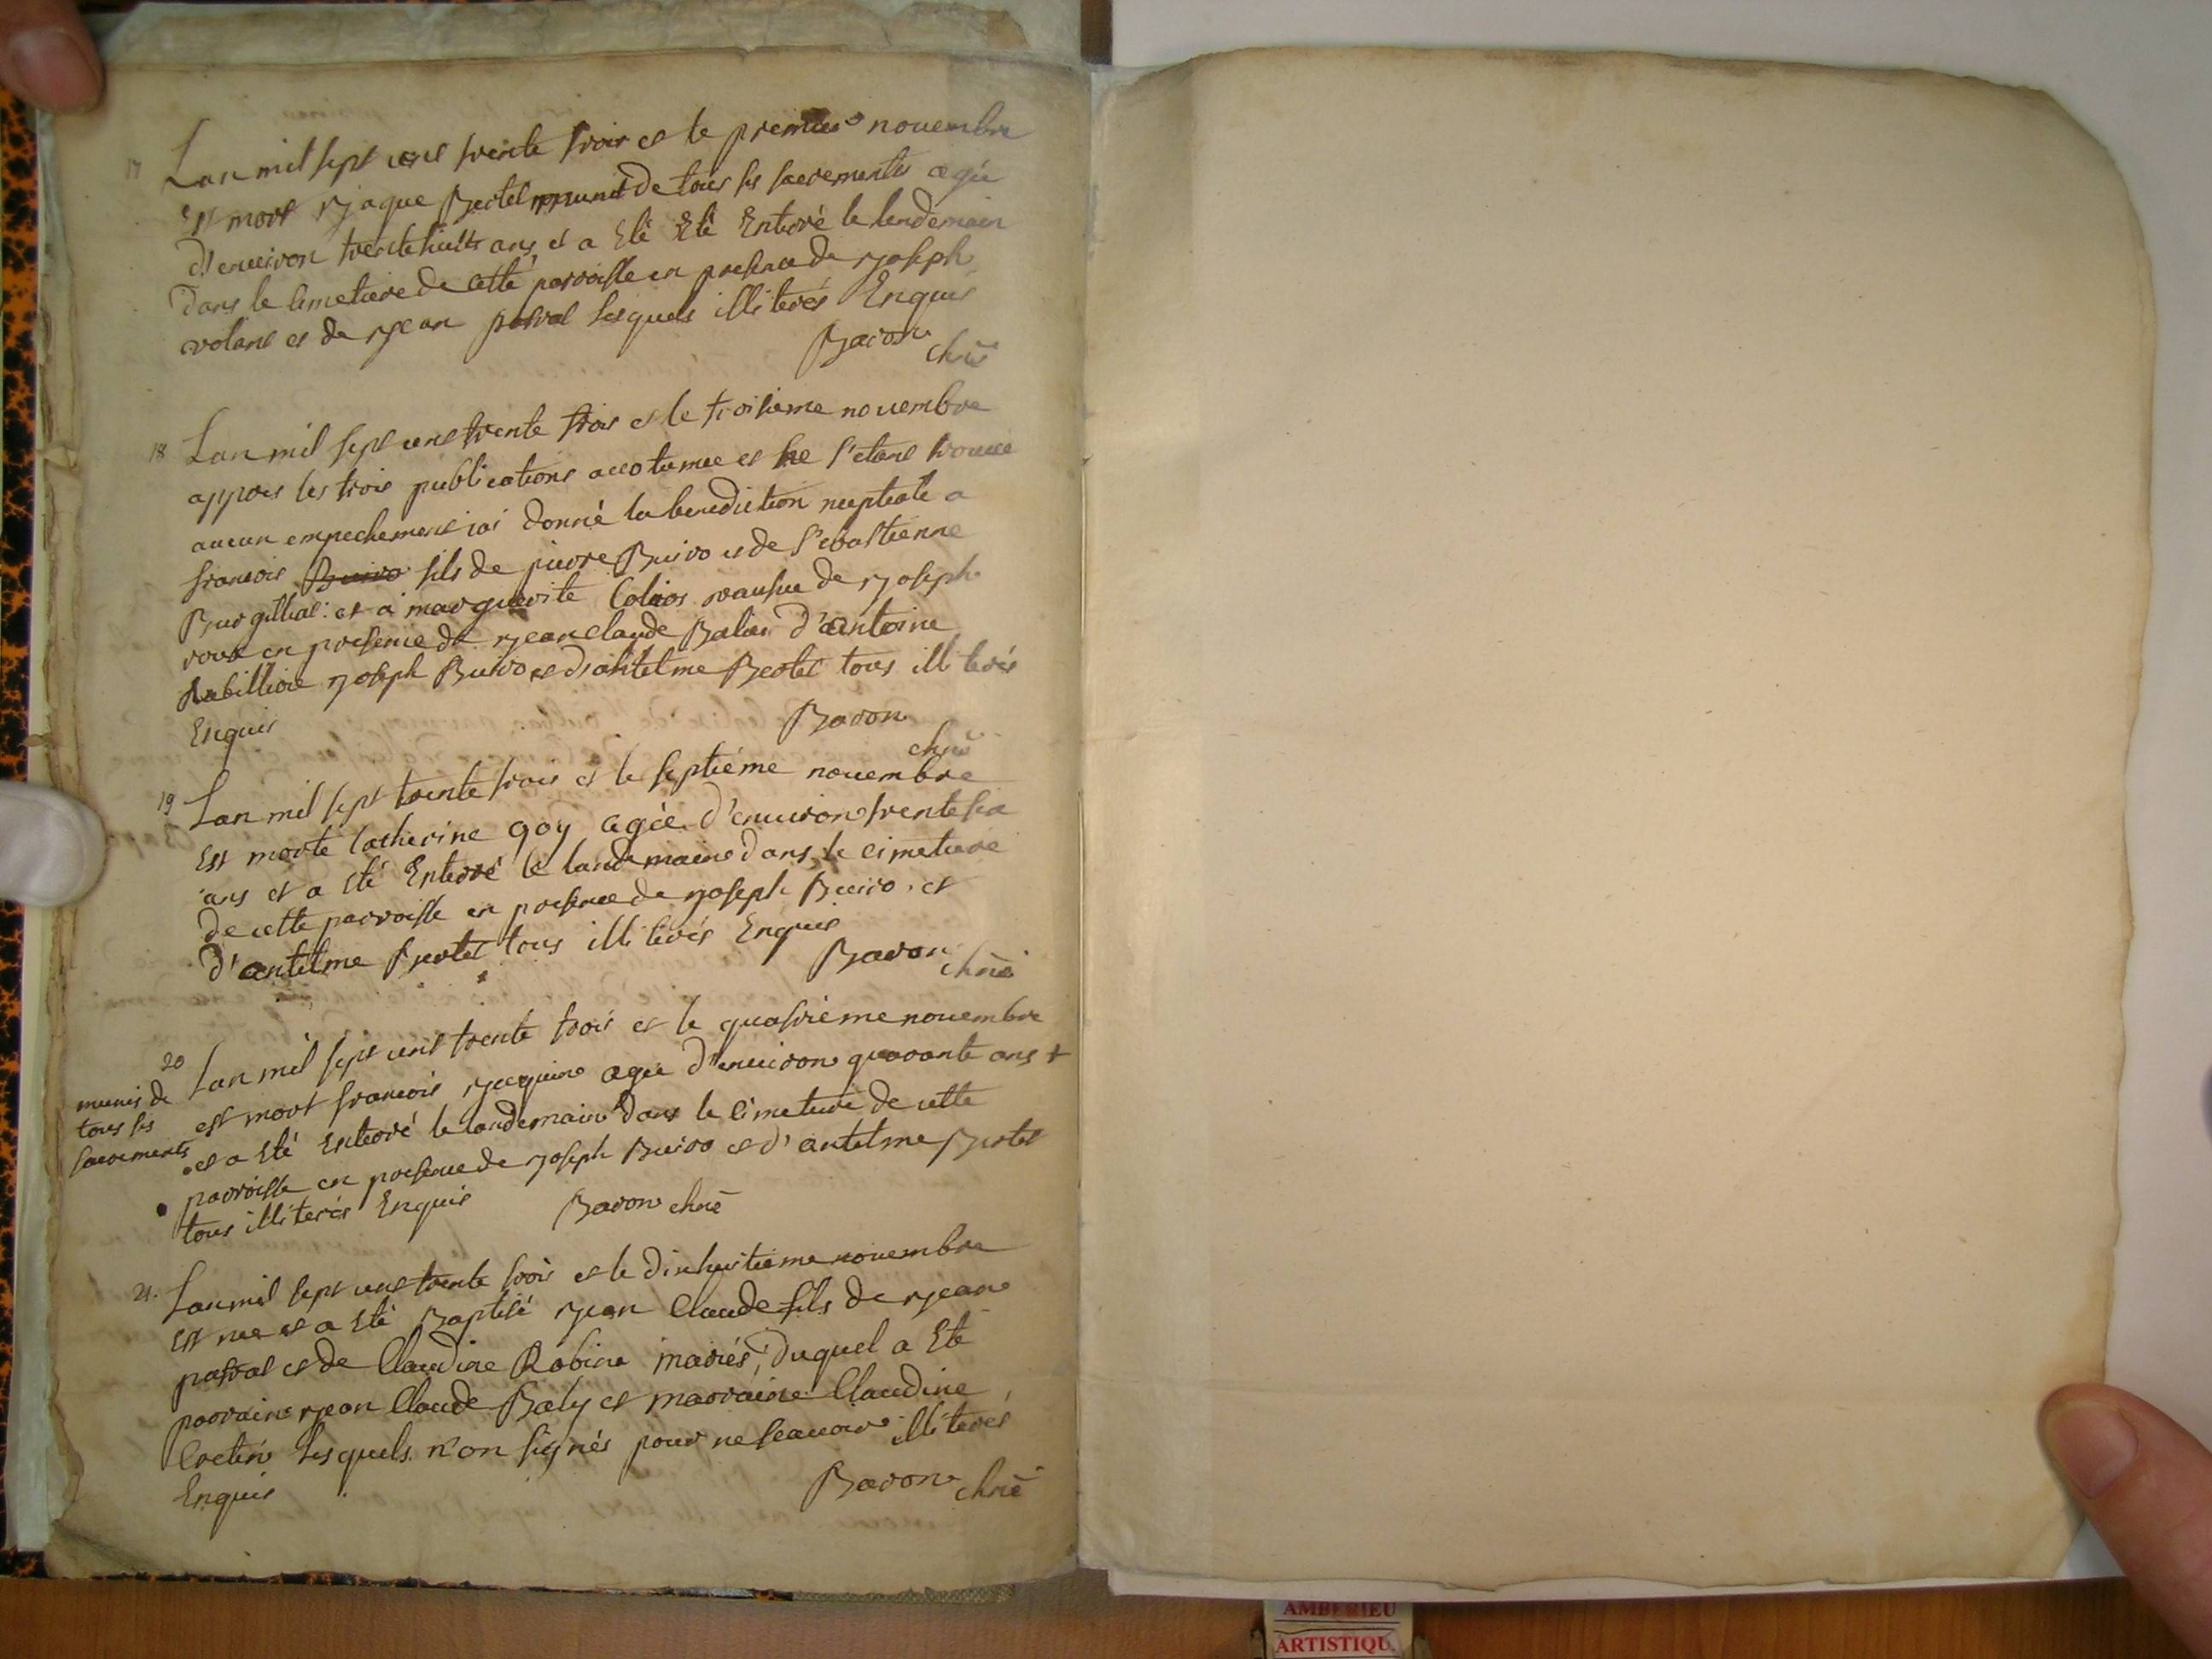 17 Lan mil sept cent trente trois et le premier novembre
Est mort Jaque Bertet muni de tous ses sacrements agée
d'environ trente huit ans et a Eté Eté Enterré le lendemain
dans le cimetiere de cette parroisse en presence de Joseph
volant et de Jean pascal lesquels illiterés Enquis
Baron
chne
18 Lan mil sept cent trente trois et le troisieme novembre
appres les trois publications accotumee et ne s'etant trouvé
aucun empechement iai donné la benediction nuptiale a
francois fils de pierre Buiro et de sebastienne
et a marguerite vausve de Joseph
roux en presence de Jean claude d'antoine
Joseph Buiro et d'antelme Bertet tous illiterés
Enquis Baron
chne
19 Lan mil sept trente trois et le septiéme novembre
Est morte Catherine goy agée d'environ trente six
ans et a eté Enterré le landemaine dans le cimetiere
de cette parroisse en presence de Joseph Buiro et
d'antelme Bertet tous illiterés Enquis
Baron chne
20 Lan mil sept cent trente trois et le quatrieme novembre
est mort francois Jacquine agée d'environ quarante ans +
munis de
tous ses
sacrements
et a Eté Enterré le landemain dans le cimetiere de cette
parroisse en presence de Joseph Buiro et d'antelme Bertet
tous illiterés Enquis Baron chne
21. Lan mil sept cent trente trois et le dixhuitieme novembre
Est nee et a Eté Baptisé Jean Claude fils de Jean
pascal et de Claudine Robine mariés, duquel a Eté
parrain Jean Claude Baly et marraine Claudine
lesquels n'on signés pour ne scavoir illiterés
Enquis Baron chne
AMBERIEU
ARTISTIQU